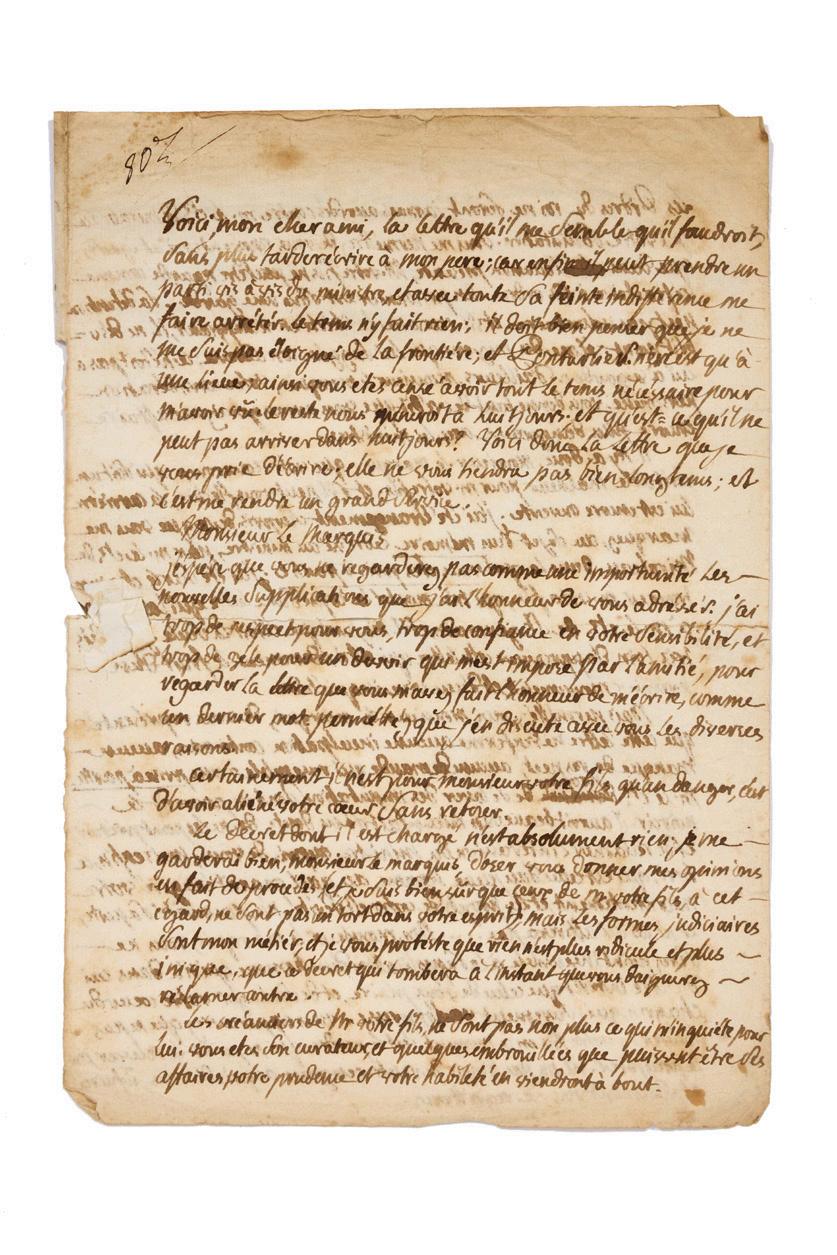 Voici, mon cher ami, la lettre qu'il me semble qu'il faudroit,
sans plus tarder écrire à mon pere; car enfin il peut prendre un
parti vis à vis du ministre, et avec toute sa feinte indifférence me
faire arrêter. le tems n'y fait rien; il doit bien penser que je ne
me suis pas éloigné de la frontière; et Pontarlier n'en est qu'à
une lieue; ainsi vous etes censé avoir tout le tems nécessaire pour
m'avoir vû. le reste nous à huit jours; et qu'est-ce qu'il ne
peut pas arriver dans huit jours? Voici donc la lettre que je
vous prie d'écrire; elle ne vous tiendra pas bien longtems; et
c'est me rendre un grand service.
Monsieur le Marquis
j'espère que vous ne regarderez pas comme une importunité les
nouvelles supplications que j'ai l'honneur de vous adresser. j'ai
trop de respect pour vous, trop de confiance en votre sensibilité, et
trop de zèle pour un devoir qui m'est imposé par l'amitié, pour
regarder la lettre que vous m'avez fait l'honneur de m'écrire, comme
un dernier mot. permettez que j'en discute avec vous les diverses
raisons.
certainement il n'est pour monsieur votre fils qu'un danger, c'est
d'avoir aliéné votre cœur sans retour.
Le decret dont il est chargé n'est absolument rien; je me
garderai bien, monsieur le marquis d'oser vous donner mes opinions
en fait de procédés, et je suis bien sûr que ceux de m votre fils à cet
égard, ne sont pas un tort dans votre esprit; mais les formes judiciaires
sont mon métier, et je vous proteste que rien n'est plus ridicule et plus
inique, que ce decret qui tombera à l'instant que vous daignerez
réclamer contre.
Les créanciers de Mr votre fils, ne sont pas non plus ce qui m'inquiéte pour
lui. vous etes son curateur, et quelques embrouillées que puissent être ses
affaires votre prudence et votre habileté en viendront à bout.